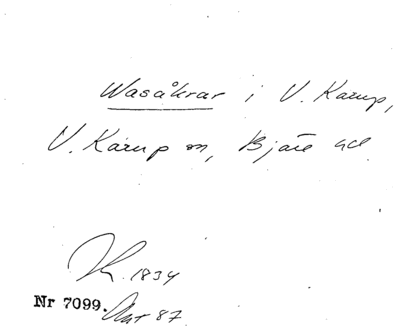 Wasåkrar i V. Karup,
V. Karup sn, Bjäre hd.
1834
Nr 7099. Akt 87